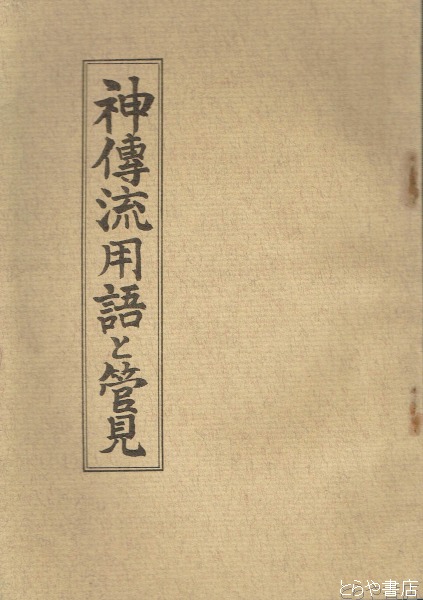 神傳流用語と管見
とらや書店